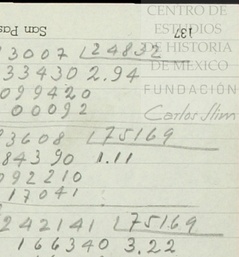 CENTRO DE
ESTUDIOS
DE HISTORIA
DE MÉXICO
FUNDACIÓN
Carlos Slim
137
San Pas
3007 24832
33430 2.94
099420
00092
3608 75169
84390 1.11
092210
17041
242141 75169
166340 3.22